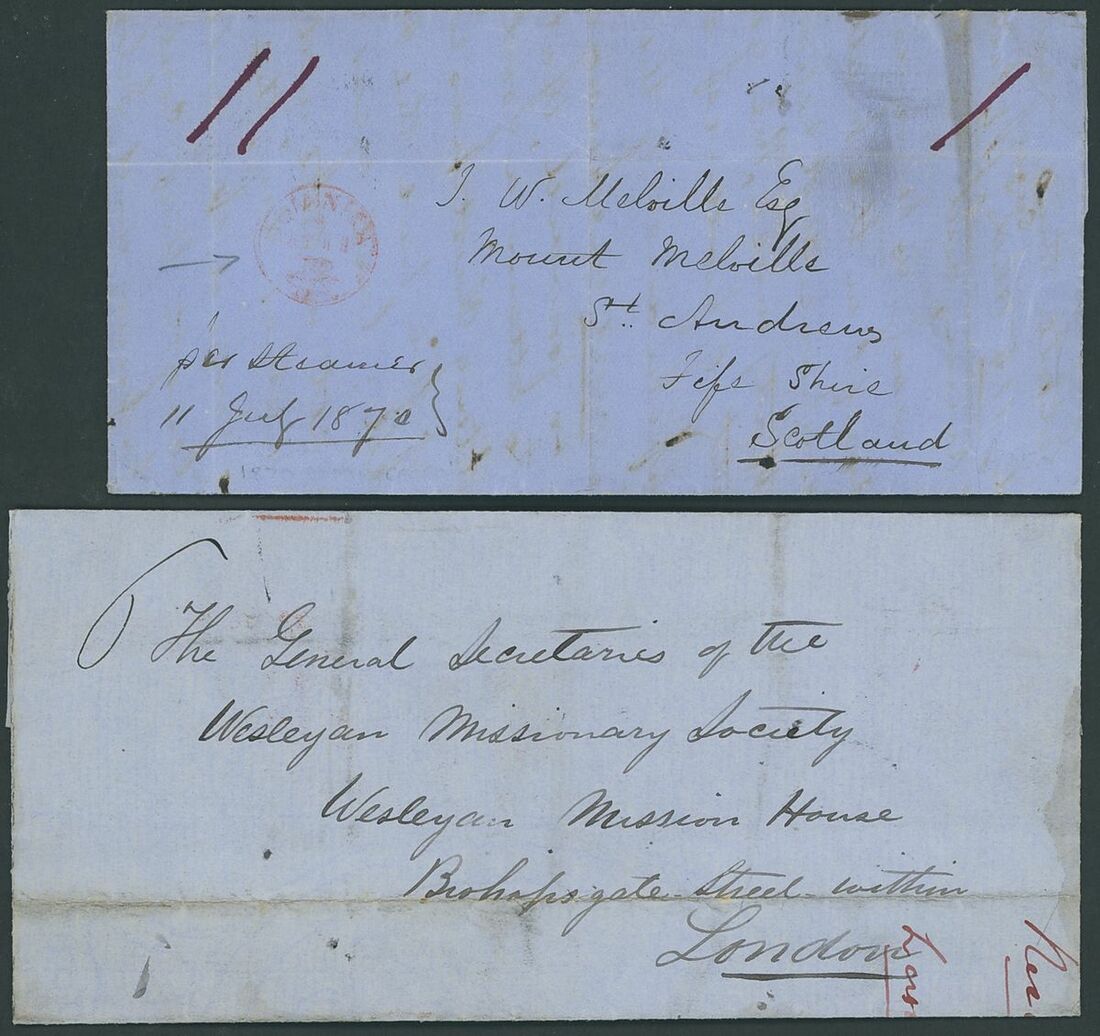 11 1
J. W. Melville Esq
Mount Melville
St. Andrews
Fife Shire
Scotland
per Steamer
11 July 1870
6
The General Secretaries of the
Wesleyan Missionary Society
Wesleyan Mission House
Bishopsgate Street within
London